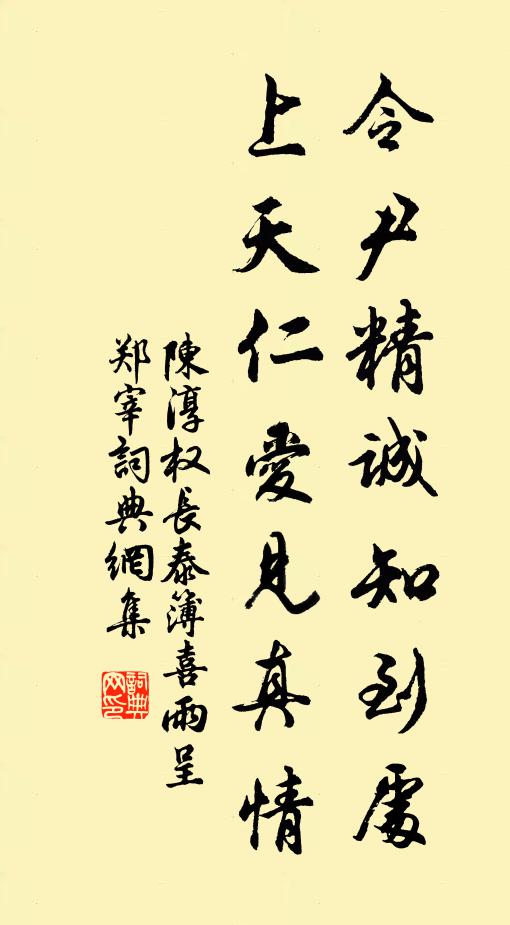 令尹精誠知到處
上天仁愛見真情
陳淳权長泰簿喜雨呈
郑宰詞典網集
詞典网印